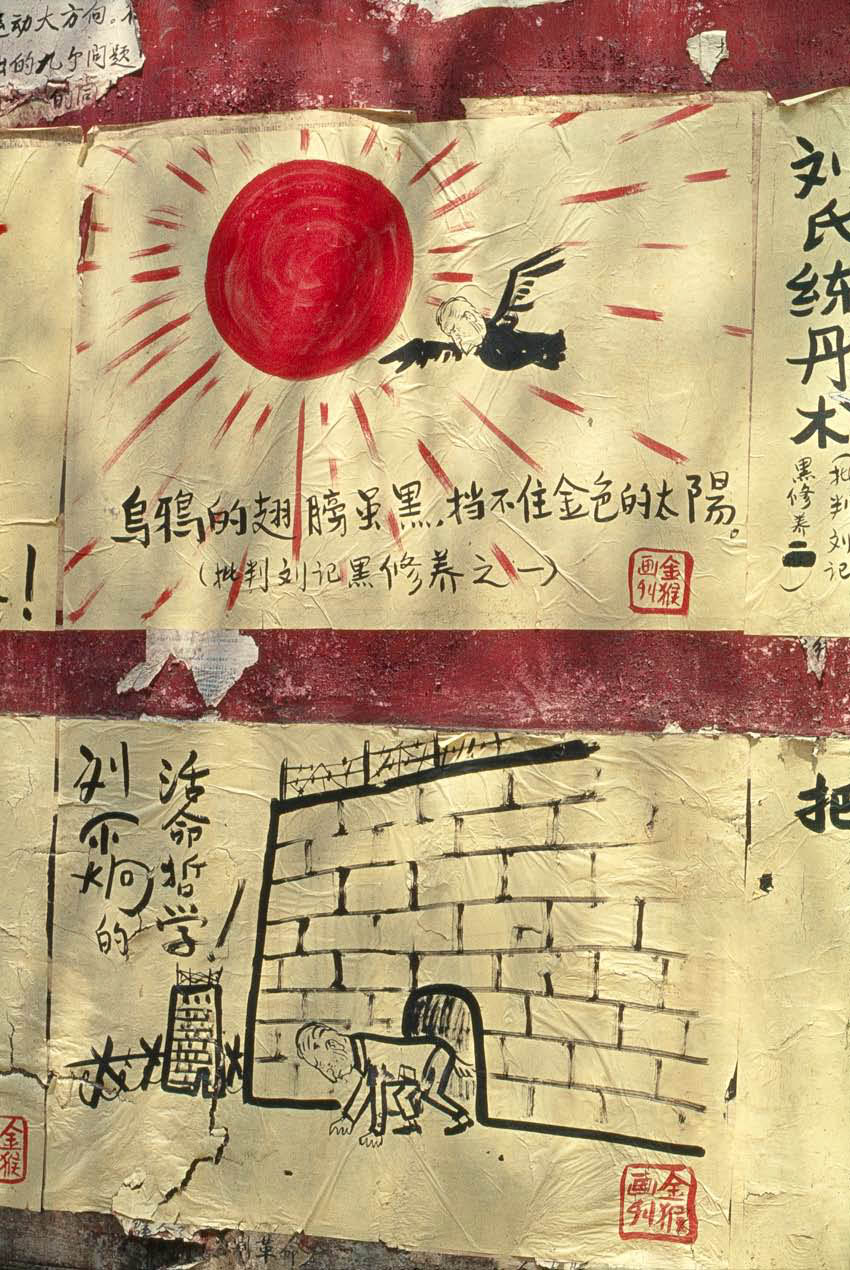 动大方向。
的九个问题
烏鴉的翅膀虽黑,挡不住金色的太陽。
(批判刘记黑修养之一)
金猴
画刊
!
刘氏练丹术
(批判刘记
黑修养二)
刘不炯的
活命哲学!
金猴
画刊
把
金猴
革命